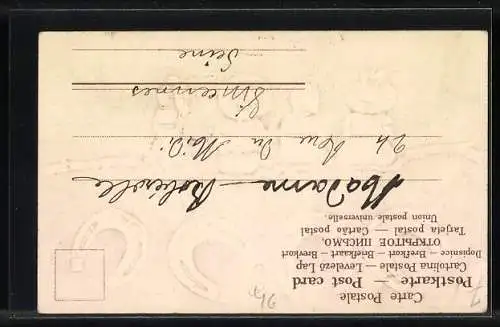 Carte Postale
Postkarte — Post card
Cartolina Postale — Levelező Lap
Dopisnice — Brefkort — Briefkaart — Brevkort
ОТКРЫТОЕ ПИСЬМО.
Tarjeta postal — Cartão postal
Union postale universelle.
Madame
24 Rue du Midi
Vincennes
Seine